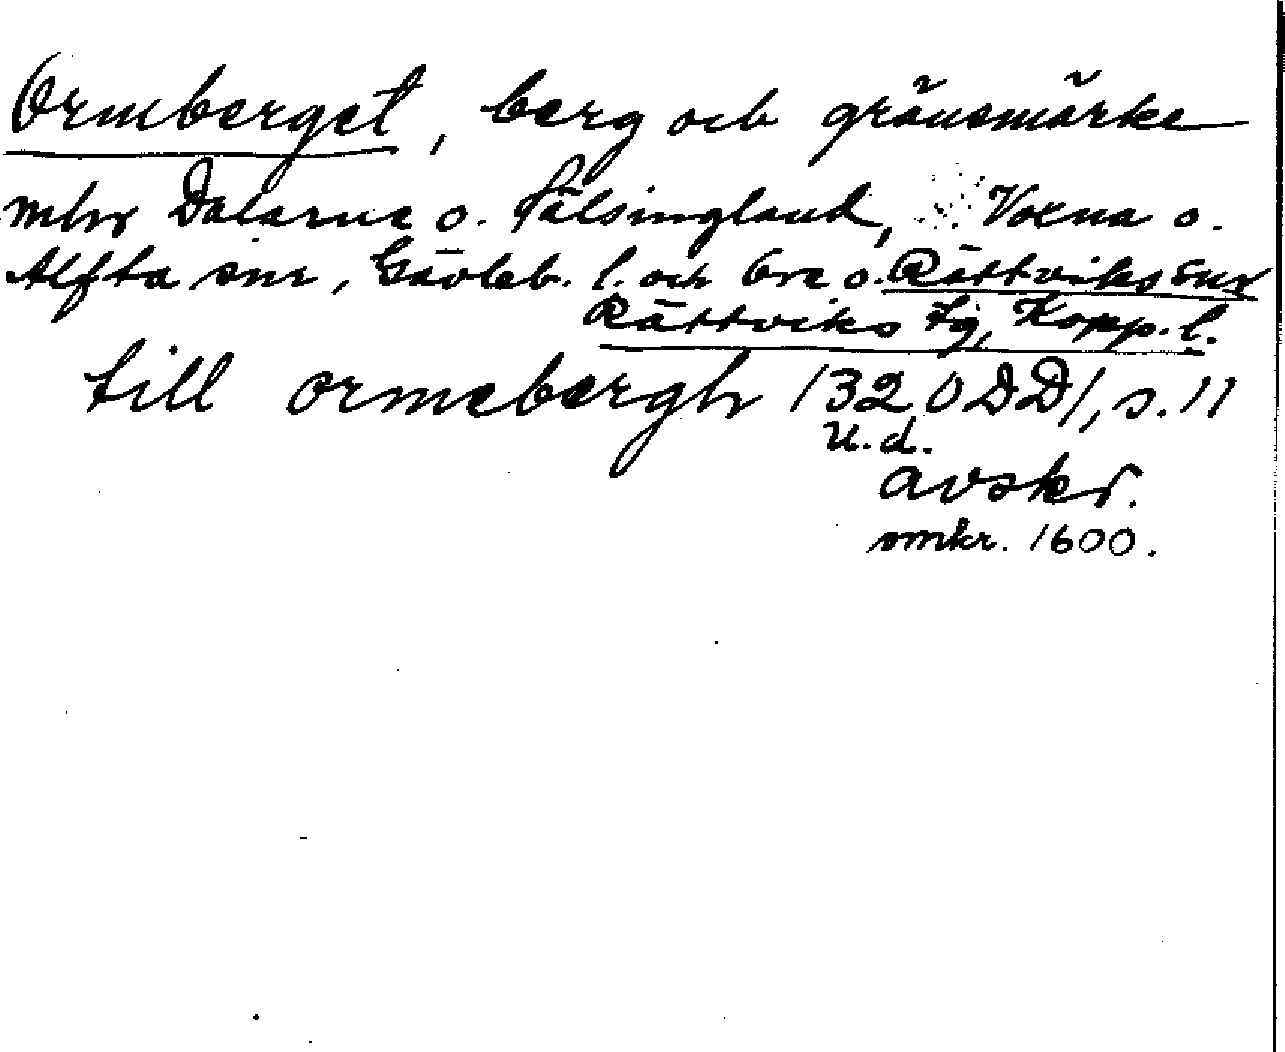 Ormberget, berg och gränsmärke
mlnr Dalarna o. Hälsingland, Voxna o.
Alfta snr, Gävleb. l. och Ore o. Rättviks snr
Rättviks tg, Kopp. l.
till ormebergh 1320 DD 1, s. 11
U. d.
avskr.
omkr. 1600.